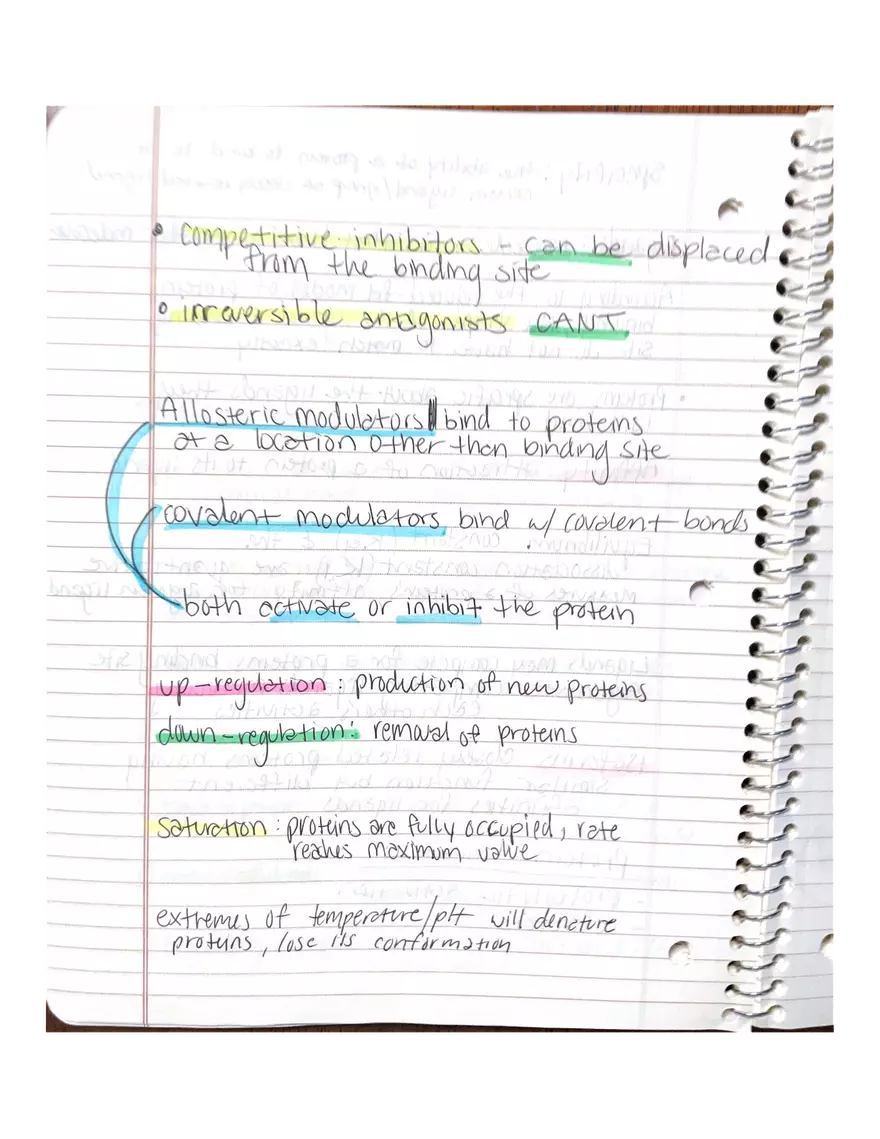 • competitive inhibitors - can be displaced
from the binding site
• irreversible antagonists CANT.
Allosteric modulators bind to proteins
at a location other than binding site
covalent modulators bind w/ covalent bonds
both activate or inhibit the protein
up-regulation: production of new proteins
down-regulation: removal of proteins
saturation: proteins are fully occupied, rate
reaches maximum value
extremes of temperature/pH will denature
proteins, lose its conformation